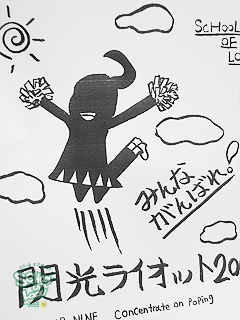 SCHOOL
OF
LO
みんな
がんばれ。
閃光ライオット20
NINE Concentrate on Poping